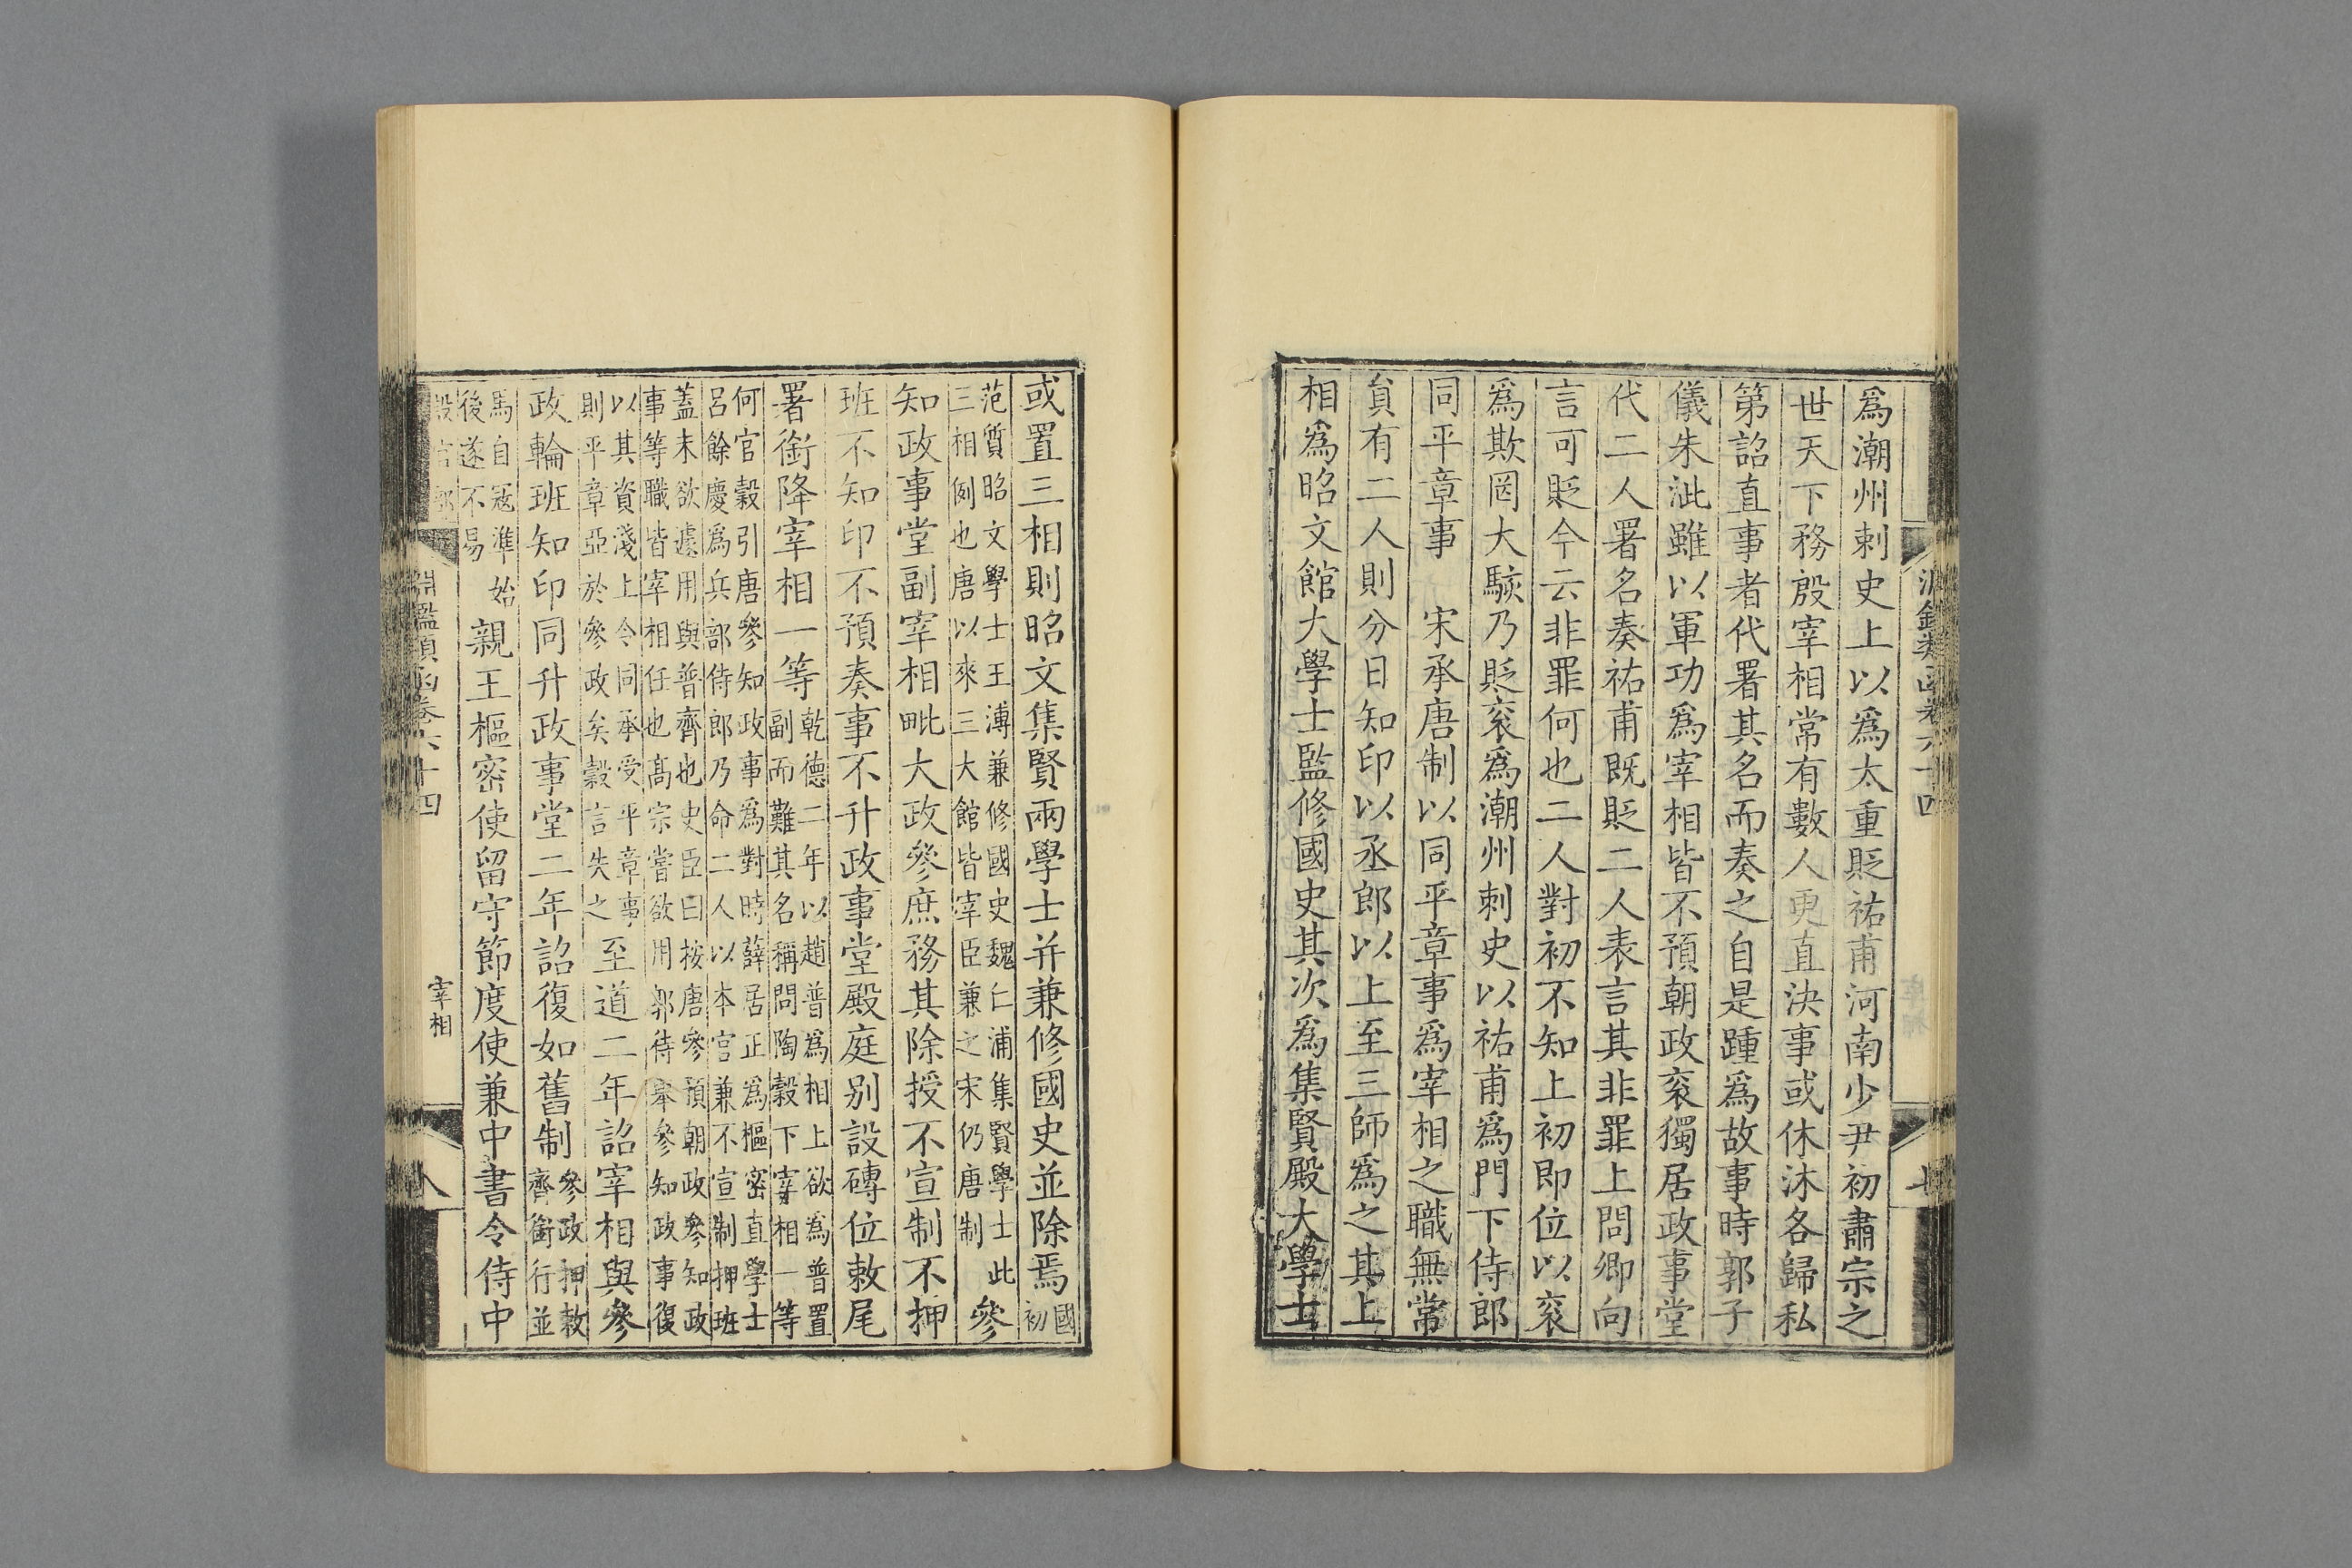 爲潮州刺史上以爲太重貶祐甫河南少尹初肅宗之
世天下務殷宰相常有數人更直決事或休沐各歸私
第詔直事者代署其名而奏之自是踵爲故事時郭子
儀朱泚雖以軍功爲宰相皆不預朝政衮獨居政事堂
代二人署名奏祐甫既貶二人表言其非罪上問卿向
言可貶今云非罪何也二人對初不知上初即位以衮
爲欺罔大駭乃貶衮爲潮州刺史以祐甫爲門下侍郎
同平章事　宋承唐制以同平章事爲宰相之職無常
貟有二人則分日知印以丞郎以上至三師爲之其上
相爲昭文館大學士監修國史其次爲集賢殿大學士
或置三相則昭文集賢兩學士并兼修國史並除焉國初
范質昭文學士王溥兼修國史魏仁浦集賢學士此
三相例也唐以來三大館皆宰臣兼之宋仍唐制
參
知政事堂副宰相毗大政參庶務其除授不宣制不押
班不知印不預奏事不升政事堂殿庭別設磚位敕尾
署銜降宰相一等
乾德二年以趙普爲相上欲爲普置
副而難其名稱問陶穀下宰相一等
何官穀引唐參知政事爲對時薛居正爲樞密直學士
呂餘慶爲兵部侍郎乃命二人以本官兼不宣制押班
蓋未欲遽用與普齊也史臣曰按唐參預朝政參知政
事等職皆宰相任也高宗嘗欲用郭待舉參知政事復
以其資淺止令同承受平章事
則平章亞於參政矣穀言失之
至道二年詔宰相與參
政輪班知印同升政事堂二年詔復如舊制
參政押敕
齊銜行並
馬自寇準始
後遂不易
親王樞密使留守節度使兼中書令侍中
淵鑑類函卷六十四
宰相
八